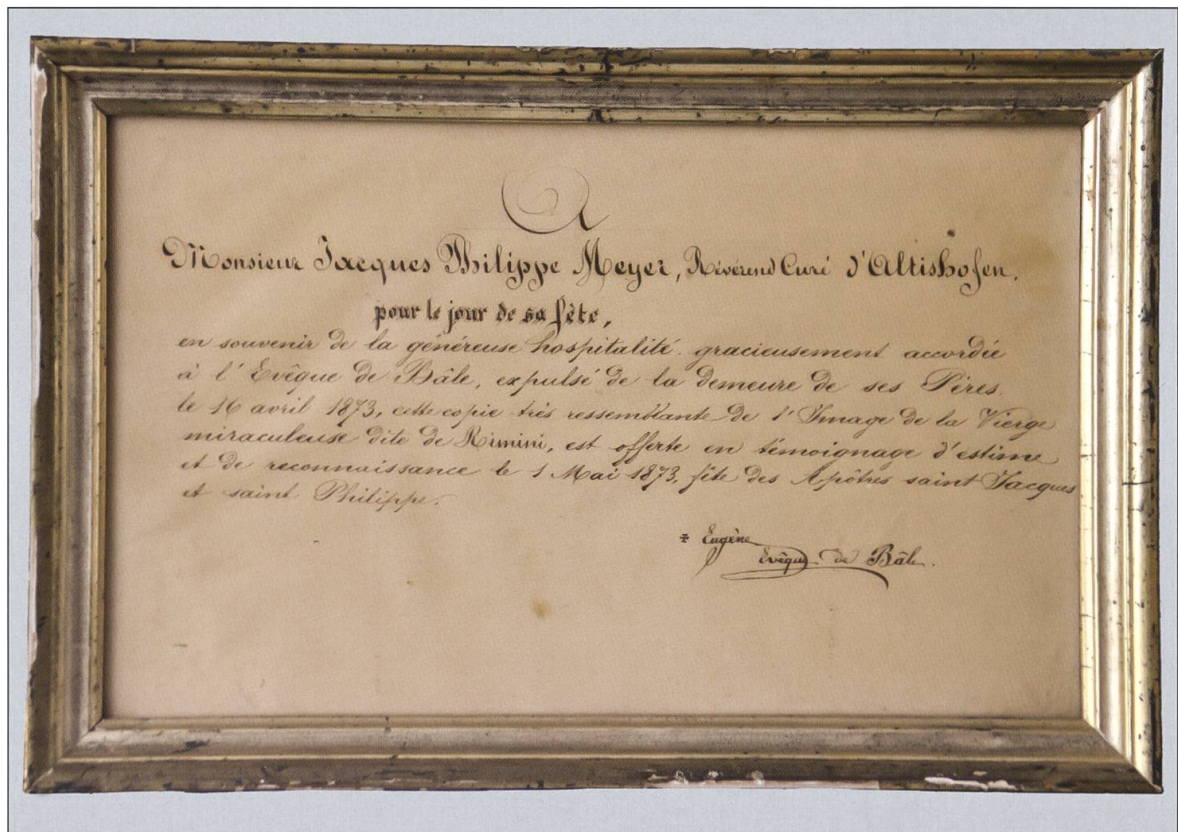 A
Monsieur Jacques Philippe Meyer, Révérend Curé d'Altishofen,
pour le jour de sa fête,
en souvenir de la généreuse hospitalité gracieusement accordée
à l'Evêque de Bâle, expulsé de la demeure de ses Pères
le 16 avril 1873, cette copie très ressemblante de l'Image de la Vierge
miraculeuse dite de Rimini, est offerte en témoignage d'estime
et de reconnaissance le 1 Mai 1873, fête des Apôtres saint Jacques
et saint Philippe.
‡ Eugène
Evêque de Bâle.